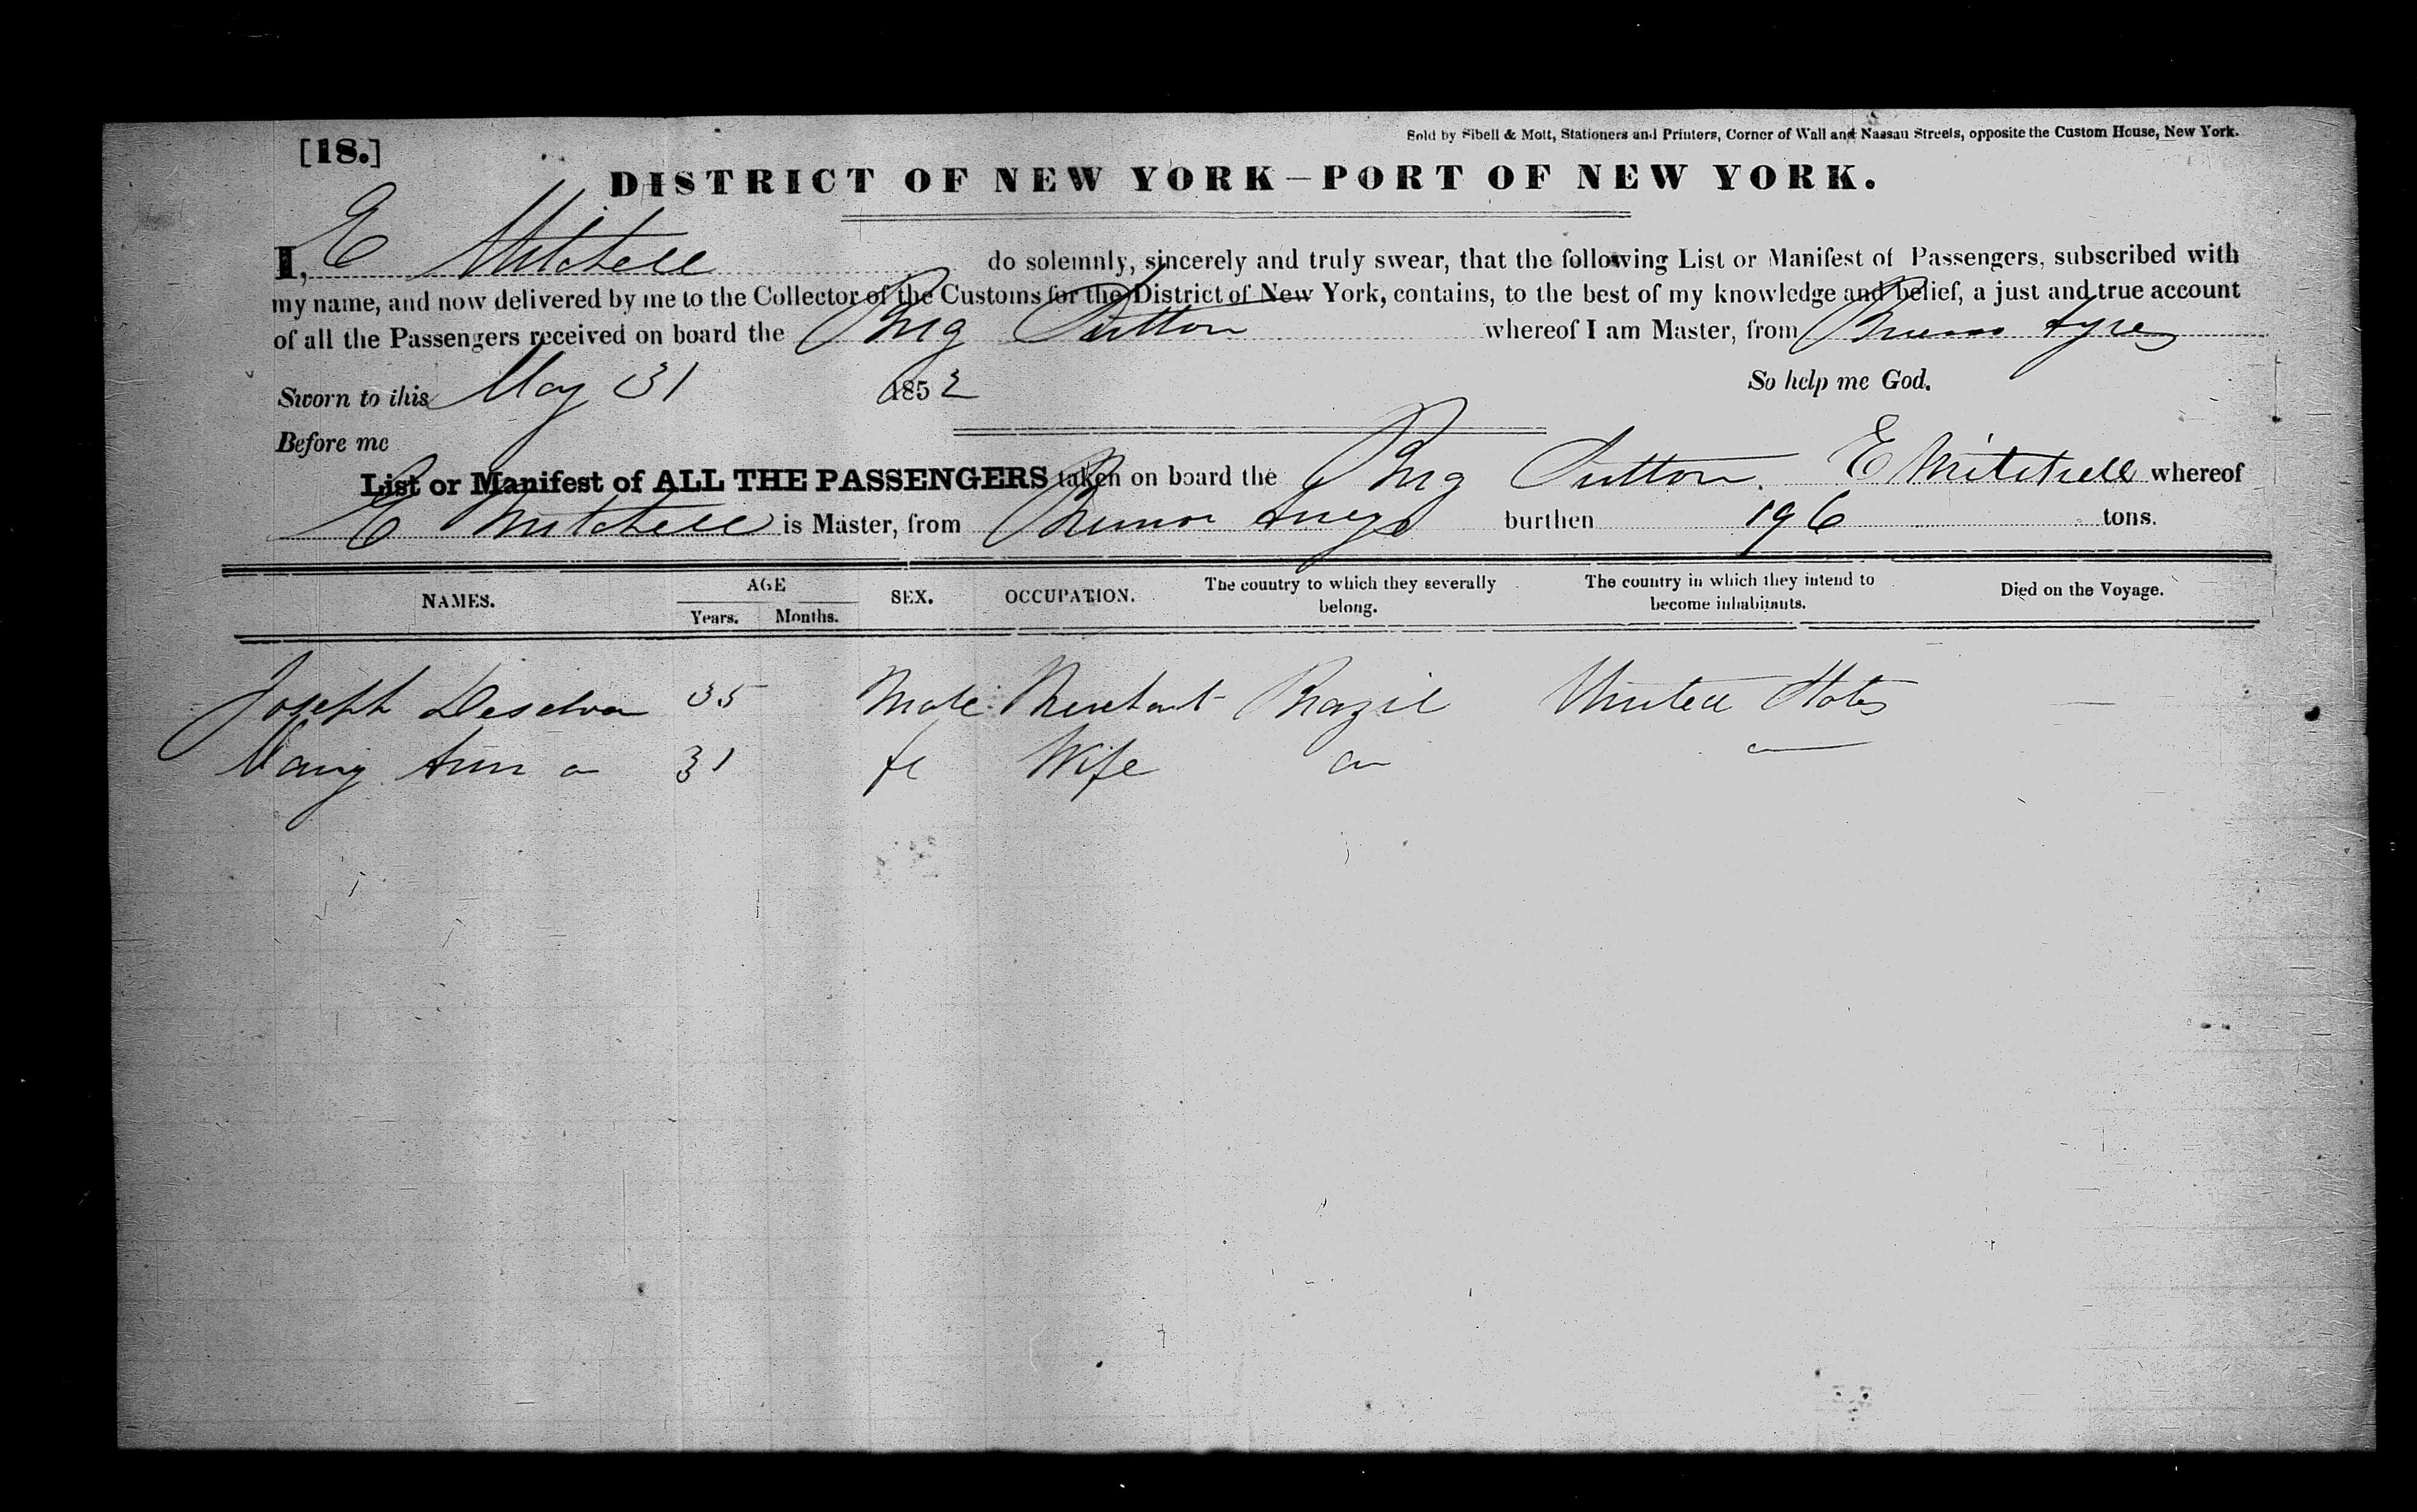 [18.]
Sold by Sibell & Mott, Stationers and Printers, Corner of Wall and Nassau Streets, opposite the Custom House, New York.
DISTRICT OF NEW YORK—PORT OF NEW YORK.
I, E Mitchell do solemnly, sincerely and truly swear, that the following List or Manifest of Passengers, subscribed with
my name, and now delivered by me to the Collector of the Customs for the District of New York, contains, to the best of my knowledge and belief, a just and true account
of all the Passengers received on board the Brig Sutton whereof I am Master, from Buenos Ayres
Sworn to this May 31 1852 So help me God.
Before me
List or Manifest of ALL THE PASSENGERS taken on board the Brig Sutton. E Mitchell whereof
E Mitchell is Master, from Buenos burthen 196 tons.
NAMES. AGE SEX. OCCUPATION. The country to which they severally belong. The country in which they intend to become inhabitants. Died on the Voyage.
Years. Months.
Joseph Deselva 35 Male Merchant Brazil United States —
Mary Ann 31 fe Wife